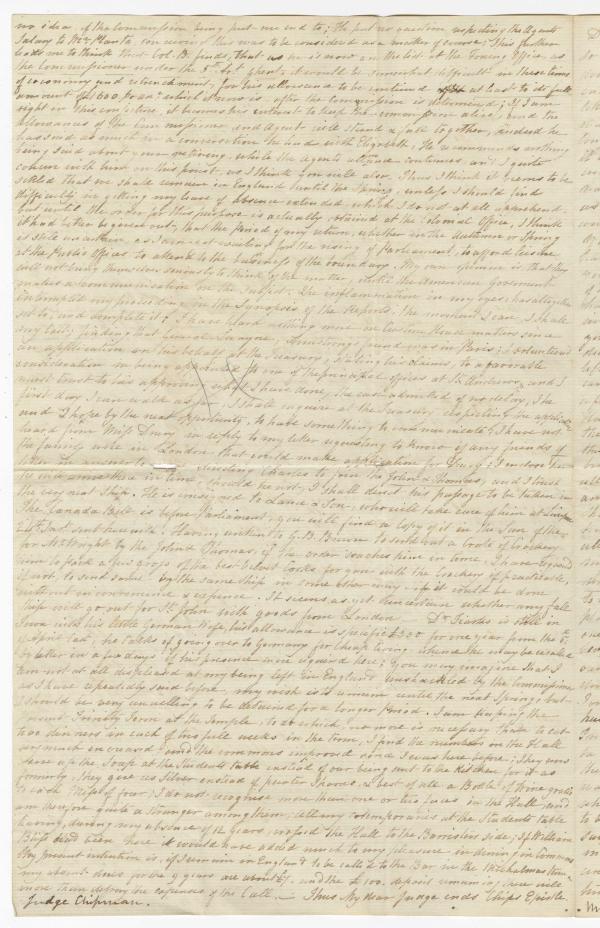 no idea of the Commission being put an end to; He put no question respecting the Agents
Salary to Mr Planta conceiving this was to be considered as a matter of course; This further
leads me to think that Col. B. finds, that as he is now on the list at the Foreign Office, as
the Commissioner under the 5th Art. Ghent, it would be somewhat difficult in these times
of oeconomy and retrenchment, for his allowance to be continued at least to its full
amount after the Commission is determined; If I am
right in this conjecture, it becomes his interest to keep the Commission alive, and the
allowances of the Commissioner and Agent will stand or fall together, indeed he
has said as much in a conversation he had with Elizabeth, He recommends nothing
being said about your retiring, while the Agents attitude continues, and I quite
cohere with him on this point, as I think you will also. Thus I think it seems to be
settled that we shall remain in England until the Spring, unless I should find
difficulty in getting my leave of absence extended which I do not at all apprehend,
but until the order for this purpose is actually obtained at the Colonial Office, I think
it had better be given out, that the period of my return, whether in the Autumn or Spring
is still uncertain, as I am yet waiting for the rising of Parliament, to afford leisure
at the Public Offices to attend to the business of the boundary. My own opinion is, that they
will not bring themselves seriously to think of the matter, until the American Government
makes a communication on the subject. The inflammation in my eyes has altogether
interrupted my proceeding in the Synopsis of the Reports, the moment I can, I shall
set to, and complete it; I have heard nothing more in Custom House matters since
my last; finding that General Coffin was in Paris; I volunteered
an application on his behalf at the Treasury, stating his claims, to a favorable
consideration in being appointed to one of the principal offices at St Andrews, and I
must trust to his approving what I have done, the case admitted of no delay, the
first day I can walk as far, I shall enquire at the Treasury respecting the application
and I hope by the next opportunity, to have something to communicate; I have not
heard from Miss Drury in reply to my letter requesting to know if any friends of
the family were in London, that could make application for
letter in answer to directing Charles to join the John &amp; Thomas, and I trust
he will arrive there in time, should he not, I shall direct his passage to be taken in
the very next Ship. He is consigned to Lance &amp; Son, who will take care of him at Liverpool
The Canada Bill is before Parliament, you will find a copy of it in the Sun of the
24th Inst. sent herewith. Having written to G. B. Brown to send out a Crate of Crockery
for Mr Wright by the John &amp; Thomas, if the order reaches him in time, I have requested
him to pack a few gross of the best Velvet Corks for you with the Crockery if practicable,
if not, to send same by the same Ship in some other way if it could be done
without inconvenience &amp; expence. It seems as yet uncertain whether any fall
Ship will go out for St John with goods from London — Dr Tiarks is still in
Town with his little German Wife, his allowance is specific £300 for one year from the 5th
of April last; he talks of going over to Germany for cheap living, whence he may be recalled
by letter in a few days if his presence were required here; You may imagine that I
am not at all displeased at my being left in England unshackled by the Commission
as I have repeatedly said before, my wish is to remain until the next Spring, but
I should be very unwilling to be detained for a longer period. I am keeping the
present Trinity Term at the Temple, to do which, no more is necessary than to eat
two dinners in each of two full weeks in the term, I find the numbers in the Hall
very much encreased and the commons improved since I was here before; They now
serve up the Soup at the Students table instead of our being sent to the Kitchen for it as
formerly, they give us Silver instead of pewter Spoons, &amp; best of all a Bottle of Wine gratis
to each Mess of four; I do not recognise more than one or two faces in the Hall and
am therefore quite a stranger among them, all my cotemporaries at the Students table
having, during my absence of 12 Years, crossed the Hall to the Barristers side; If William
Bliss had been here it would have added much to my pleasure in dining in Commons
My present intention is, if I remain in England to be called to the Bar in the Michaelmas term
my absent dues for the 9 years are about £ and the £100. deposit remaining there will
more than defray the expences of the Call. — Thus My dear Judge ends this Epistle.
Judge Chipman.